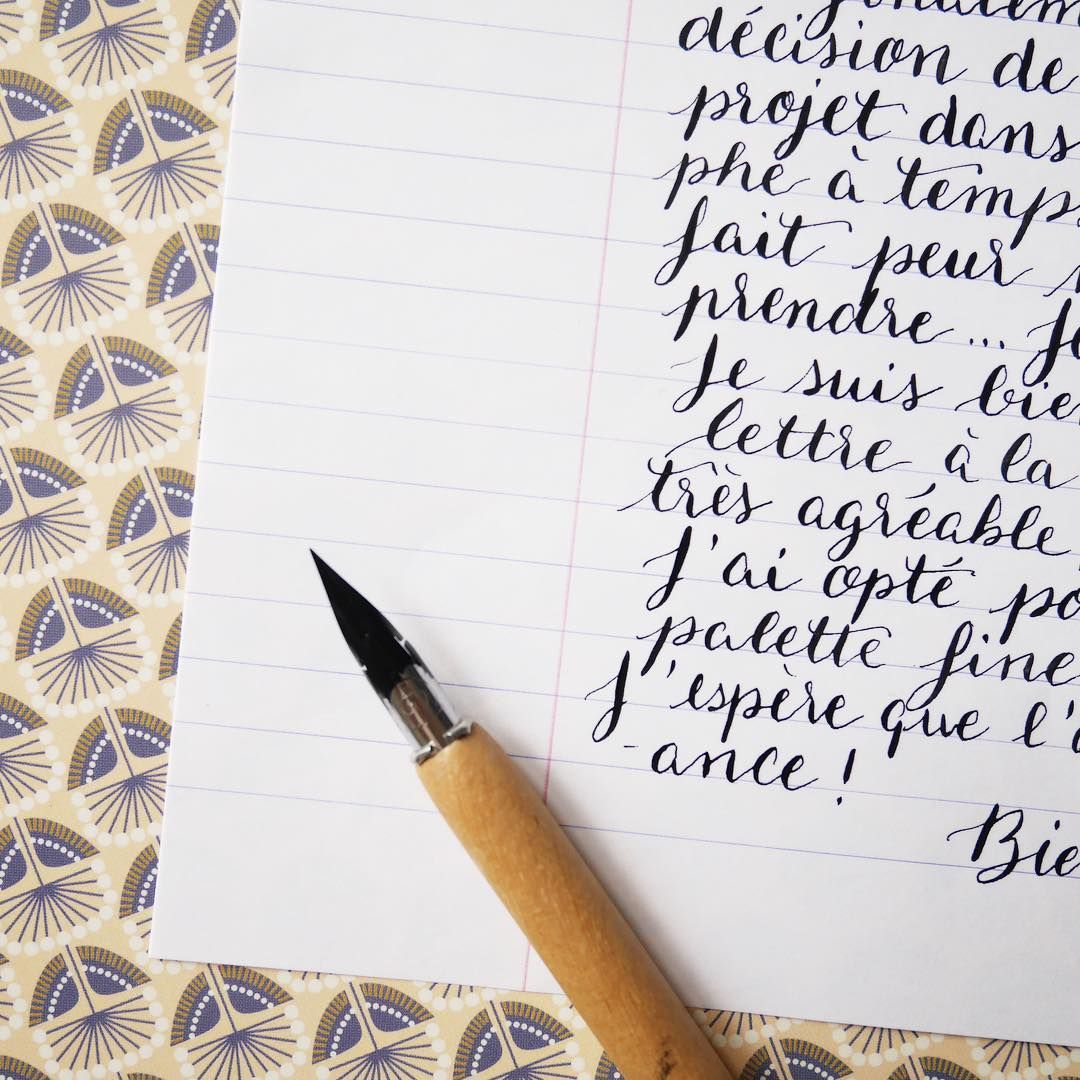 décision de
projet dans
phe à temp
fait peur
prendre... Je
Je suis bie
lettre à la
très agréable
J'ai opté po
palette fine
J'espère que l'a
-ance !
Bie